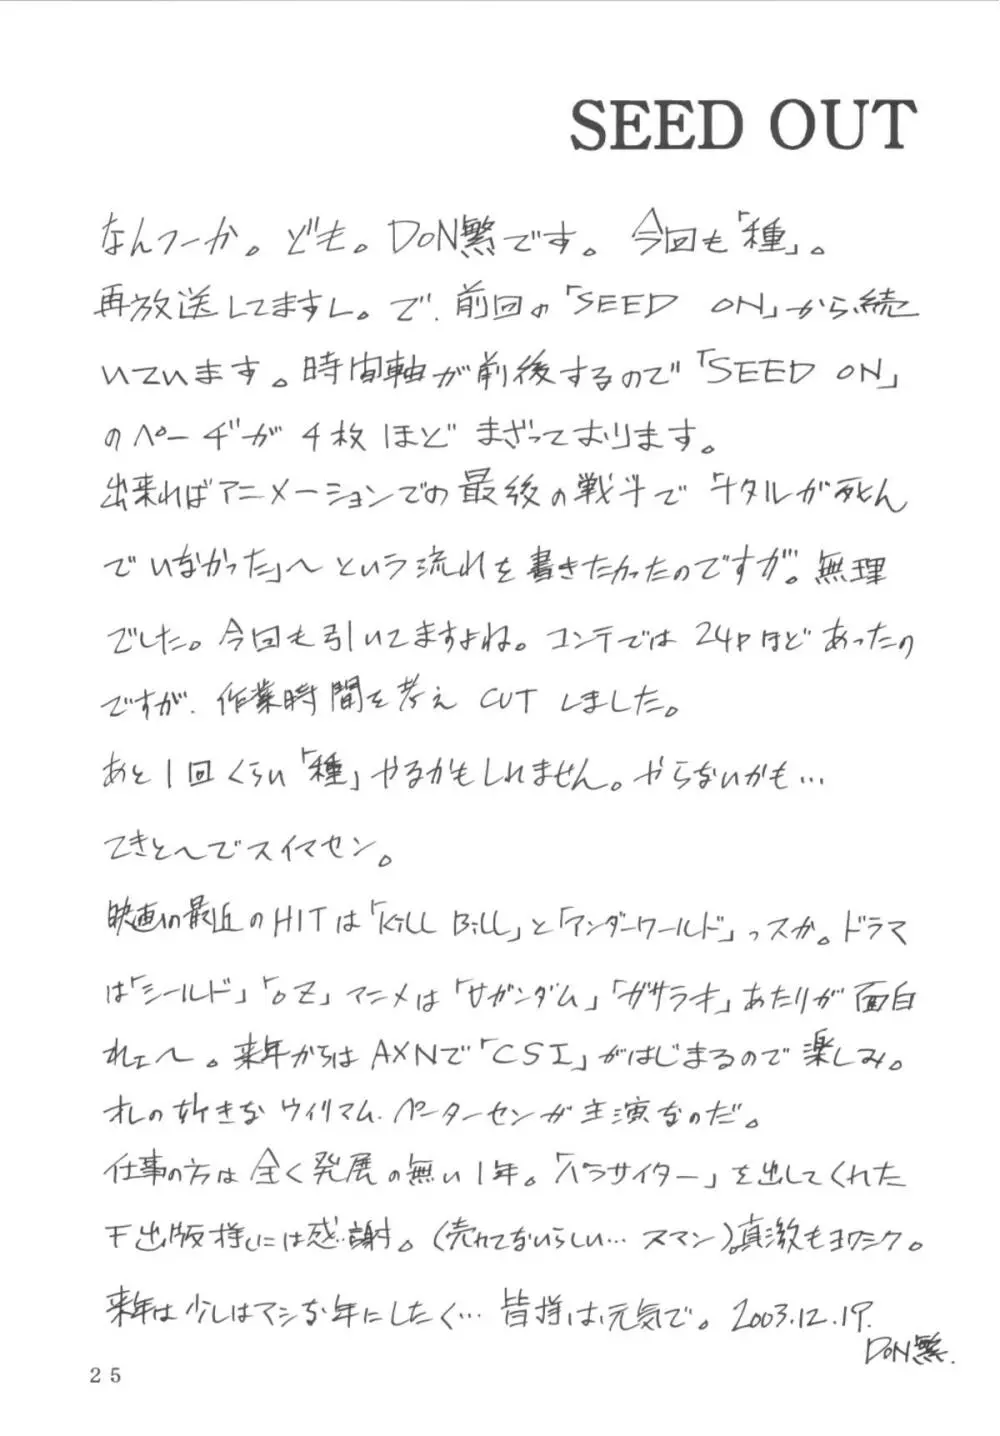 SEED OUT
なんつーか。ども。DON繁です。今回も「種」。
再放送してますし。で、前回の「SEED ON」から続
いています。時間軸が前後するので「SEED ON」
のページが4枚ほどまざっております。
出来ればアニメーションでの最後の戦斗で「ナタルが死ん
でいなかった」〜という流れを書きたかったのですが。無理
でした。今回も引いてますよね。コンテでは24Pほどあったの
ですが、作業時間を考えCUTしました。
あと1回くらい「種」やるかもしれません。やらないかも…
てきと〜でスイマセン。
映画の最近のHITは「Kill Bill」と「アンダーワールド」っスか。ドラマ
は「シールド」「OZ」アニメは「サガンダム」「ガサラキ」あたりが面白
れェ〜。来年からはAXNで「CSI」がはじまるので楽しみ。
オレの好きなウィリアム・ペーターセンが主演なのだ。
仕事の方は全く発展の無い1年。「パラサイター」を出してくれた
出版様には感謝。(売れてないらしい…スマン)。真激もヨロシク。
来年は少しはマシな年にしたく…皆様は元気で。2003.12.19.
DON繁.
25